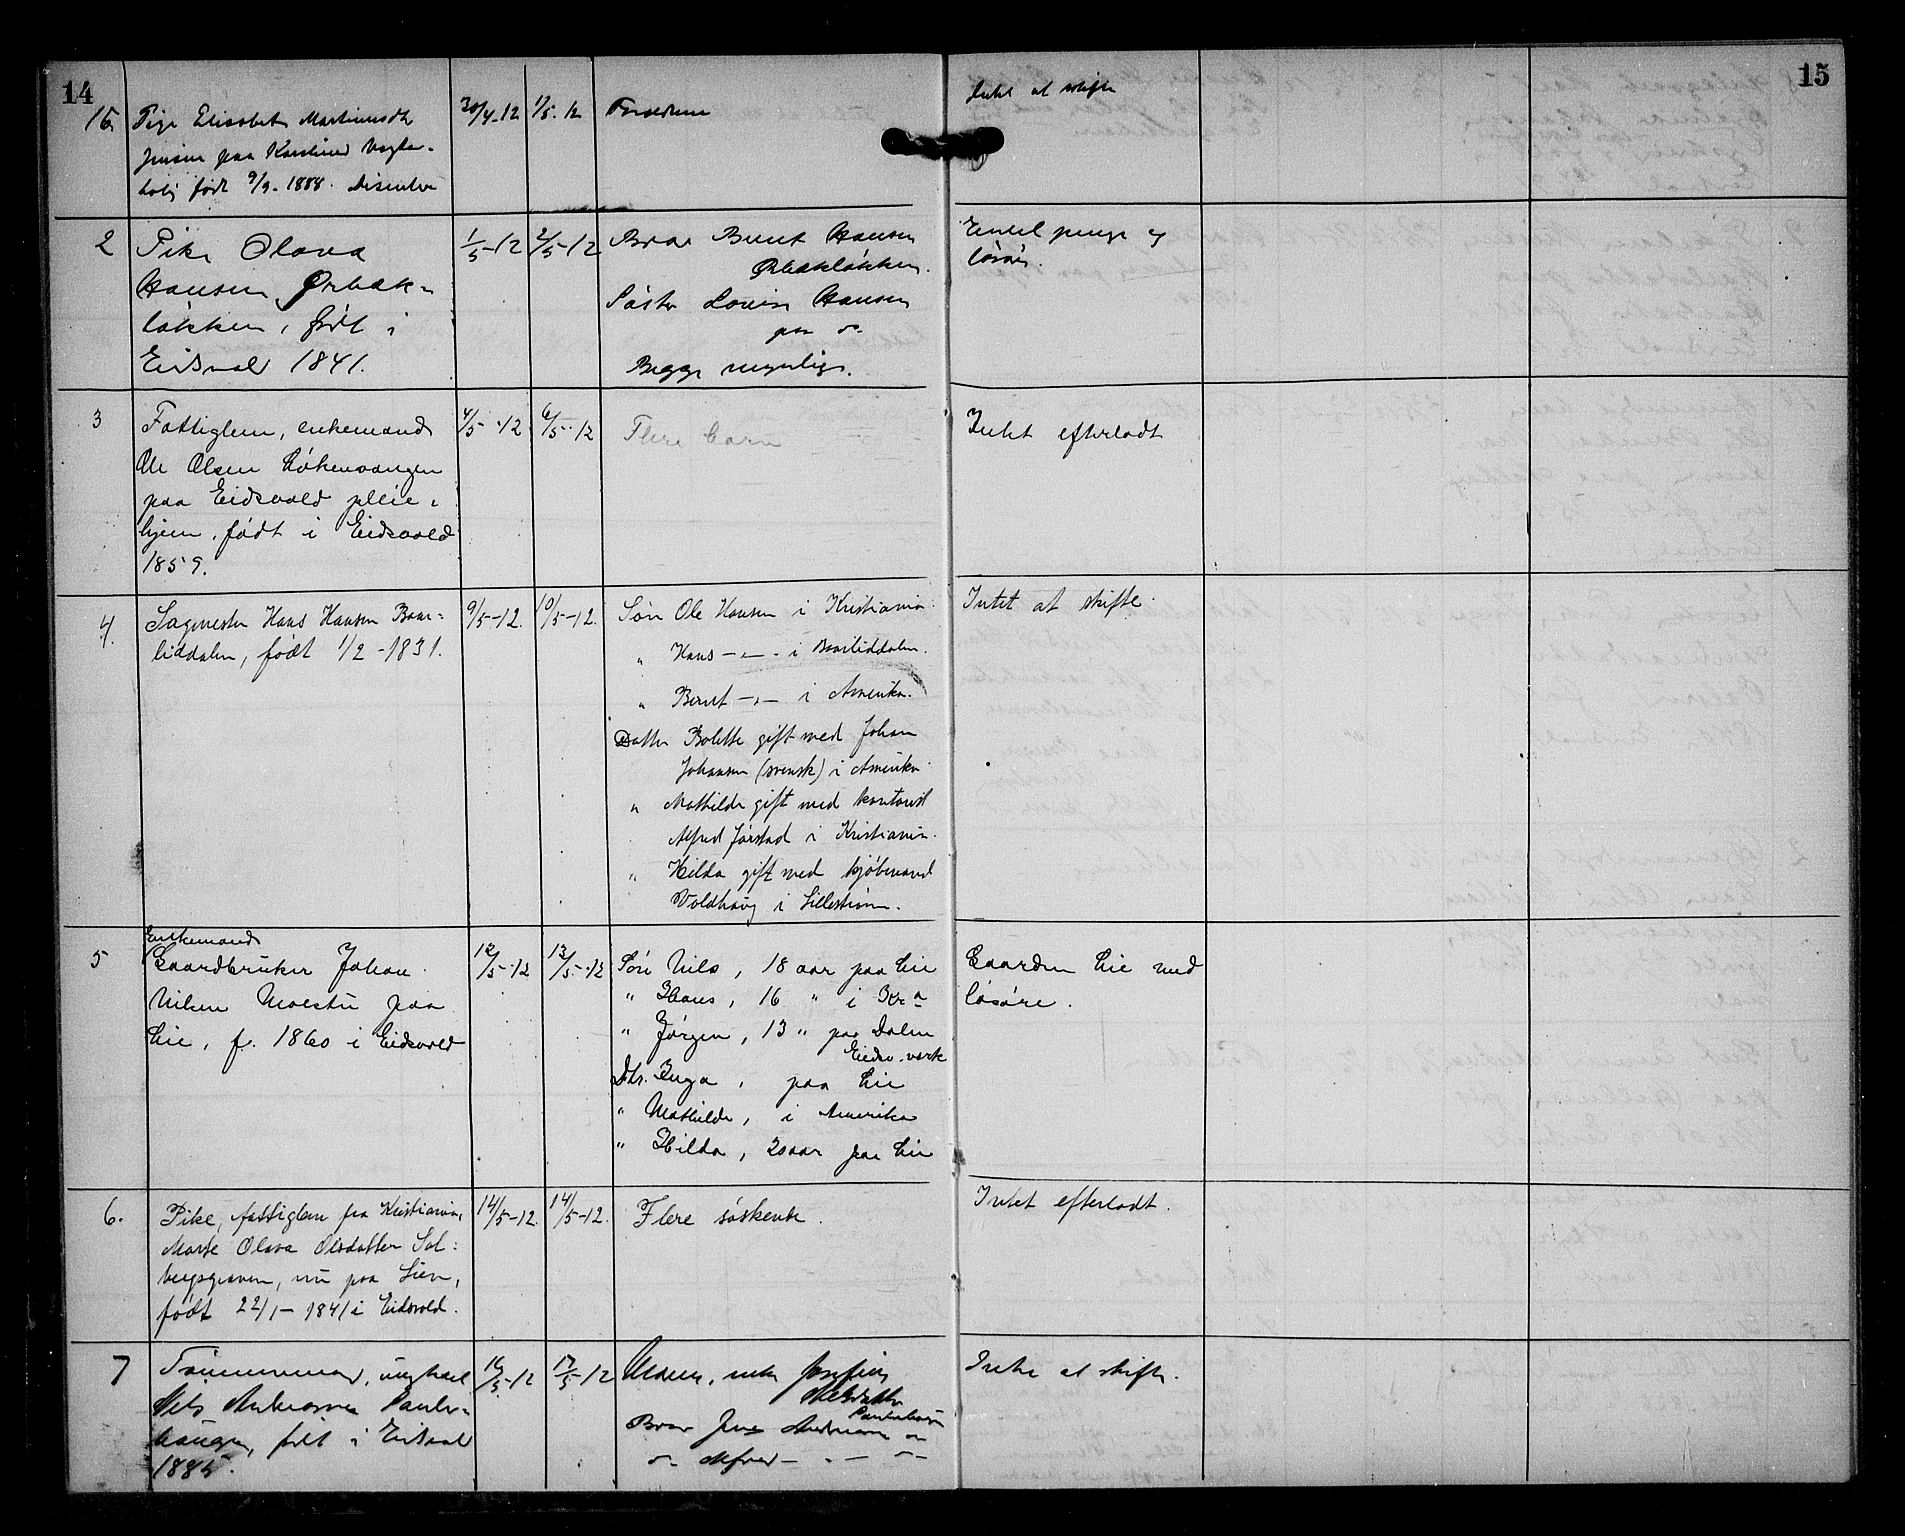 14
15
15 Pige Elisabet Martinusdtr 30/4-12 1/5-12 Forældrene Intet at skifte
Jensen paa Karolines
født 9/9-1888. Disenter
2 Pike Olava 1/5-12 2/5-12 Bror Bernt Hansen Endel penge og
Hansen Ørbæk- Ørbækløkken. løsøre.
løkken, født i Søster Lovise Hansen
Eidsvold 1841. paa do
Begge myndige.
3 Fattiglem, enkemand 4/5-12 6/5-12 Flere barn Intet efterladt
Ole Olsen Løkenvangen
paa Eidsvold pleie-
hjem, født i Eidsvold
1859.
4. Sagmester Hans Hansen Baar- 9/5-12. 10/5-12. Søn Ole Hansen i Kristiania. Intet at skifte.
liddalen, født 1/2-1831. " Hans -"- i Baarliddalen.
" Bernt -"- i Amerika.
Datter Bolette gift med Johan
Johansen (svensk) i Amerika.
" Mathilde gift med kontorist
Alfred Jørstad i Kristiania.
" Hilda gift med kjøbmand
Voldhaug i Lillestrøm.
5 Enkemand
Gaardbruker Johan 12/5-12 13/5-12 Søn Nils, 18 aar paa Lie Gaarden Lie med
Nilsen Moestu paa " Hans, 16 " i Kra løsøre.
Lie, f. 1860 i Eidsvold " Jørgen, 13 " paa Dalen
Eidsv. verk
Dtr. Inga, paa Lie
" Mathilde, i Amerika
" Hilda, 20 aar paa Lie
6. Pike, fattiglem fra Kristiania, 14/5-12. 14/5-12. Flere søskende. Intet efterladt.
Marte Olava Olsdatter Sol-
bergsgraven, nu paa Lien,
født 22/1-1841 i Eidsvold.
7 Tømmermand, ungkarl 16/5-12 17/5-12 Moren, enke Josefine Intet at skifte.
Nils Andreassen Pauls- Nilsdatter
haugen, født i Eidsvold Paulshaugen
1885. Bror Jens Andreassen do
do Alfred - " - do